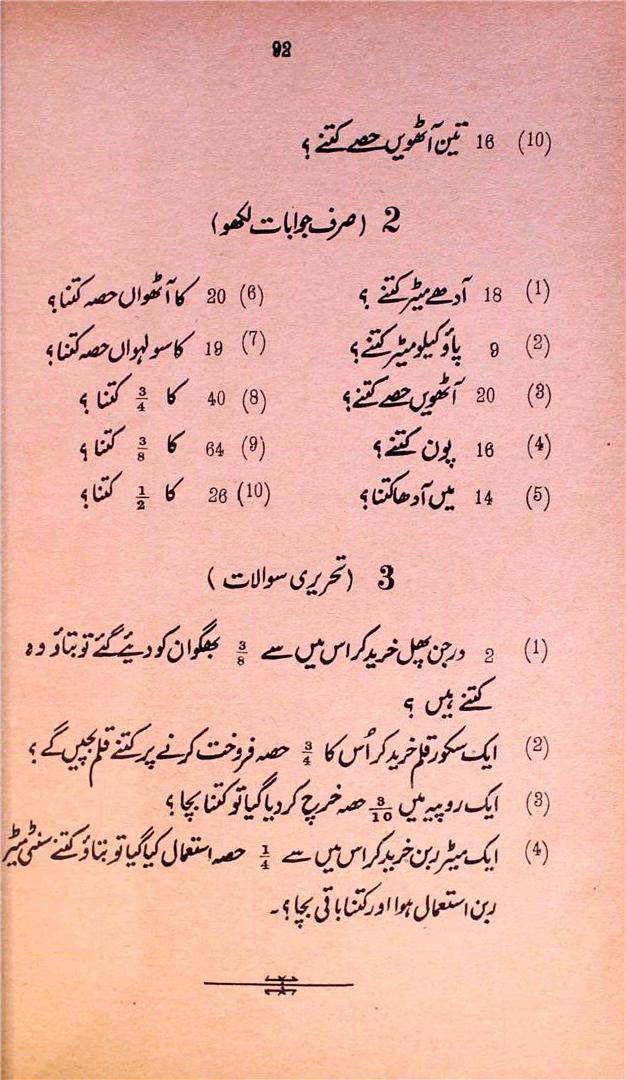 92
(10) 16 تین آٹھویں حصے کتنے ؟
2 (صرف جوابات لکھو)
(1) 18 آدھے میٹر کتنے ؟
(2) 9 پاؤ کیلو میٹر کتنے ؟
(3) 20 آٹھویں حصے کتنے ؟
(4) 16 پون کتنے ؟
(5) 14 میں آدھا کتنا ؟
(6) 20 کا آٹھواں حصہ کتنا ؟
(7) 19 کا سولہواں حصہ کتنا ؟
(8) 40 کا 3/4 کتنا ؟
(9) 64 کا 3/8 کتنا ؟
(10) 26 کا 1/2 کتنا ؟
3 (تحریری سوالات)
(1) 2 درجن پھل خرید کر اس میں سے 3/8 بھگوان کو دیئے گئے تو بتاؤ وہ
کتنے ہیں ؟
(2) ایک سکور قلم خرید کر اُس کا 3/4 حصہ فروخت کرنے پر کتنے قلم بچیں گے ؟
(3) ایک روپیہ میں 3/10 حصہ خرچ کر دیا گیا تو کتنا بچا ؟
(4) ایک میٹر ربن خرید کر اس میں سے 1/4 حصہ استعمال کیا گیا تو بتاؤ کتنے سنٹی میٹر
ربن استعمال ہوا اور کتنا باقی بچا ؟۔